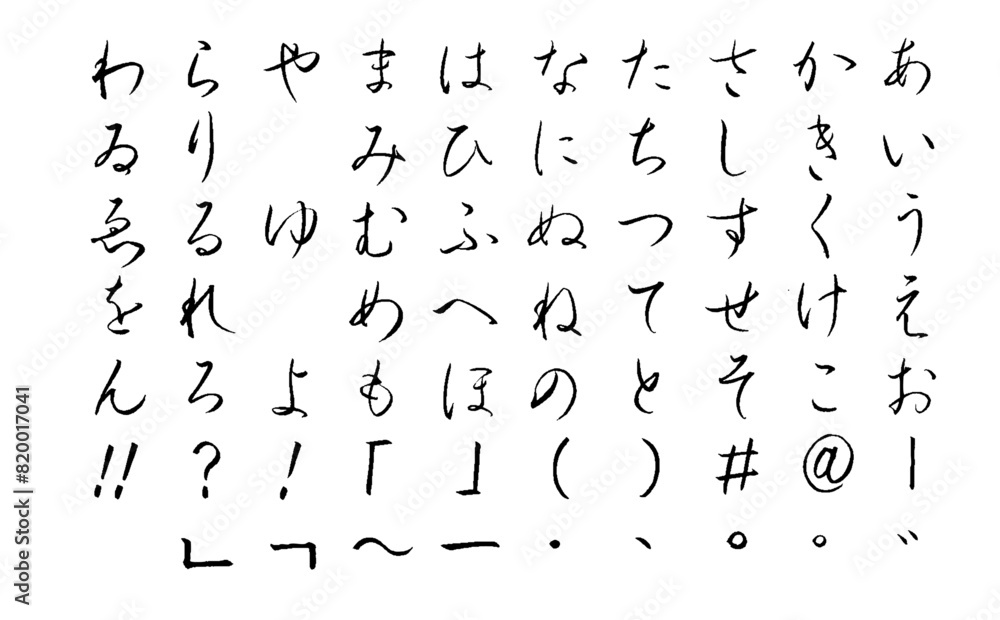 あいうえお｜゛
かきくけこ@゜
さしすせそ#。
たちつてと）、
なにぬねの（・
はひふへほ」ー
まみむめも「～
やゆよ！﹁
らりるれろ？﹂
わゐゑをん!!
Adobe Stock | #820017041